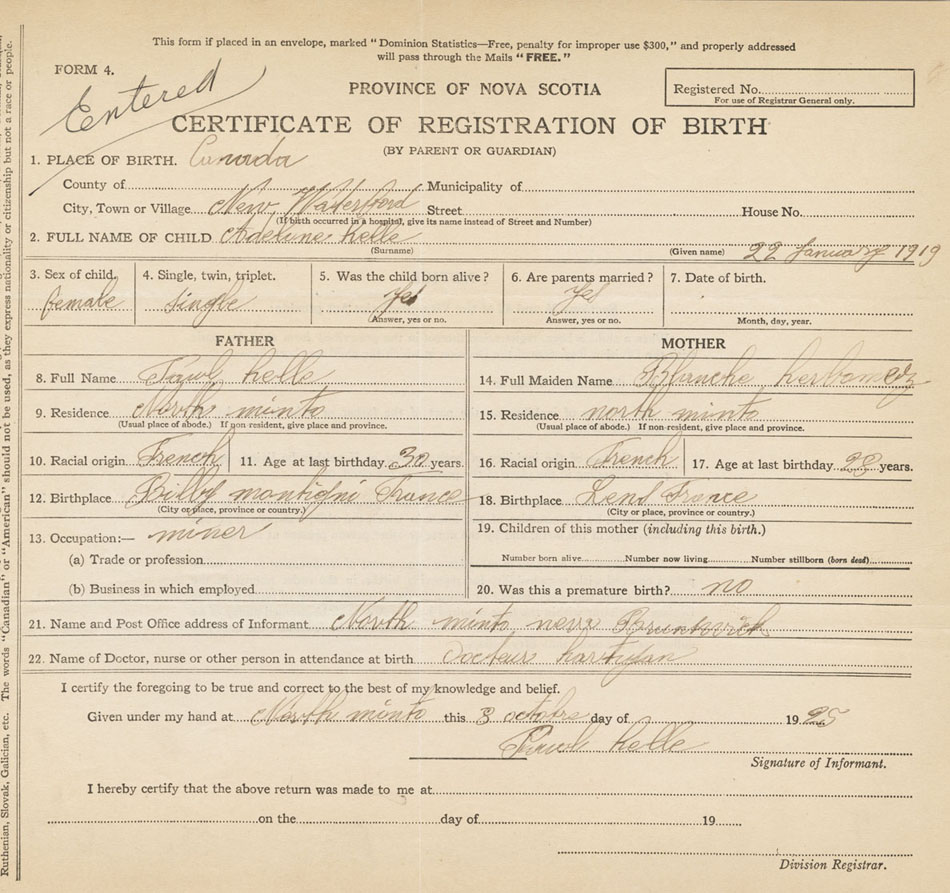 This form if placed in an envelope, marked "Dominion Statistics—Free, penalty for improper use $300," and properly addressed
will pass through the Mails "FREE."
FORM 4.
Entered
PROVINCE OF NOVA SCOTIA
Registered No.
For use of Registrar General only.
CERTIFICATE OF REGISTRATION OF BIRTH
(BY PARENT OR GUARDIAN)
1. PLACE OF BIRTH. Canada
County of Municipality of
City, Town or Village New Waterford Street House No.
(If birth occurred in a hospital, give its name instead of Street and Number)
2. FULL NAME OF CHILD Adeline helle
(Surname) (Given name) 22 January 1919
3. Sex of child. 4. Single, twin, triplet. 5. Was the child born alive? 6. Are parents married? 7. Date of birth.
female single yes yes
Answer, yes or no. Answer, yes or no. Month, day, year.
FATHER
8. Full Name Paul helle
9. Residence North minto
(Usual place of abode.) If non-resident, give place and province.
10. Racial origin French 11. Age at last birthday 30 years.
12. Birthplace Billy montigni France
(City or place, province or country.)
13. Occupation:— miner
(a) Trade or profession
(b) Business in which employed
MOTHER
14. Full Maiden Name Blanche
15. Residence north minto
(Usual place of abode.) If non-resident, give place and province.
16. Racial origin French 17. Age at last birthday 28 years.
18. Birthplace Lens France
(City or place, province or country.)
19. Children of this mother (including this birth.)
Number born alive Number now living Number stillborn (born dead)
20. Was this a premature birth? no
21. Name and Post Office address of Informant North minto
22. Name of Doctor, nurse or other person in attendance at birth Docteur
I certify the foregoing to be true and correct to the best of my knowledge and belief.
Given under my hand at North minto this 3 octobre day of 1925
Paul helle
Signature of Informant.
I hereby certify that the above return was made to me at
on the day of 19
Division Registrar.
Ruthenian, Slovak, Galician, etc. The words "Canadian" or "American" should not be used, as they express nationality or citizenship but not a race or people.